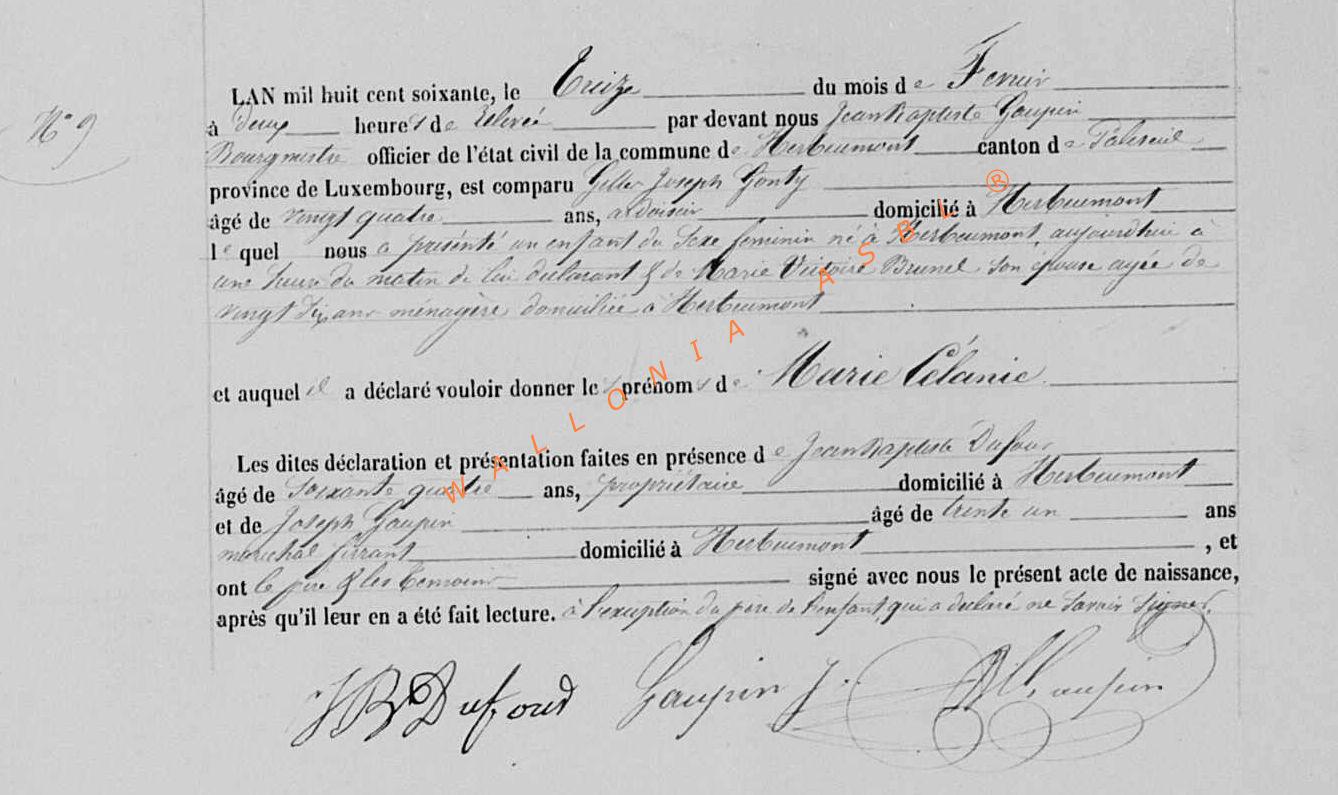 N° 9
LAN mil huit cent soixante, le Treize du mois de Fevrier
à deux heures de relevée par devant nous Jean Baptiste Gaupin
Bourgmestre officier de l'état civil de la commune de Herbeumont canton de Paliseul
province de Luxembourg, est comparu Gilles Joseph Gonty
âgé de vingt quatre ans, ardoisier domicilié à Herbeumont
le quel nous a présenté un enfant du sexe feminin né à Herbeumont, aujourdhui à
une heure du matin de lui déclarant & de Marie Victoire Brunel son épouse agée de
vingt six ans ménagère domiciliée à Herbeumont
et auquel il a déclaré vouloir donner les prénoms de Marie Célanie
Les dites déclaration et présentation faites en présence de Jean Baptiste Dufour
âgé de soixante quatre ans, propriétaire domicilié à Herbeumont
et de Joseph Gaupin âgé de trente un ans
maréchal ferrant domicilié à Herbeumont , et
ont le père & les témoins signé avec nous le présent acte de naissance,
après qu'il leur en a été fait lecture. à l'exception du père de l'enfant, qui a déclaré ne savoir signer.
JB Dufour Gaupin J. Gaupin
WALLONIA ASBL ®